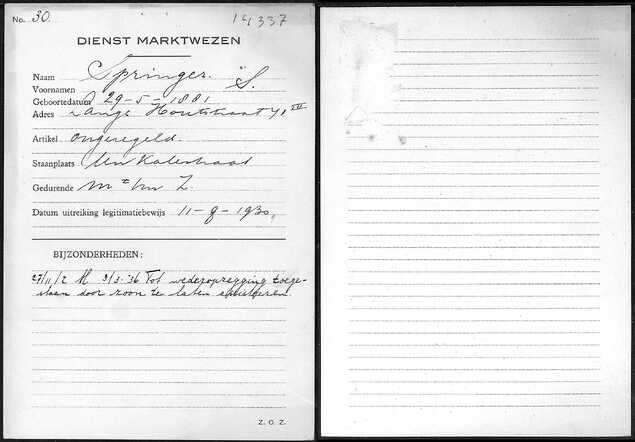 No. 30. 14337
DIENST MARKTWEZEN
Naam Springer. S.
Voornamen
Geboortedatum 29-5-1881
Adres Lange Houtstraat 41 III
Artikel ongeregeld
Staanplaats Uilenburgerstraat
Gedurende m t/m Z.
Datum uitreiking legitimatiebewijs 11-9-1930,
BIJZONDERHEDEN:
27/11/2 M 3/3-'36 Tot wederopzegging toege-
staan door zoon te laten assisteren.
Z. O. Z.